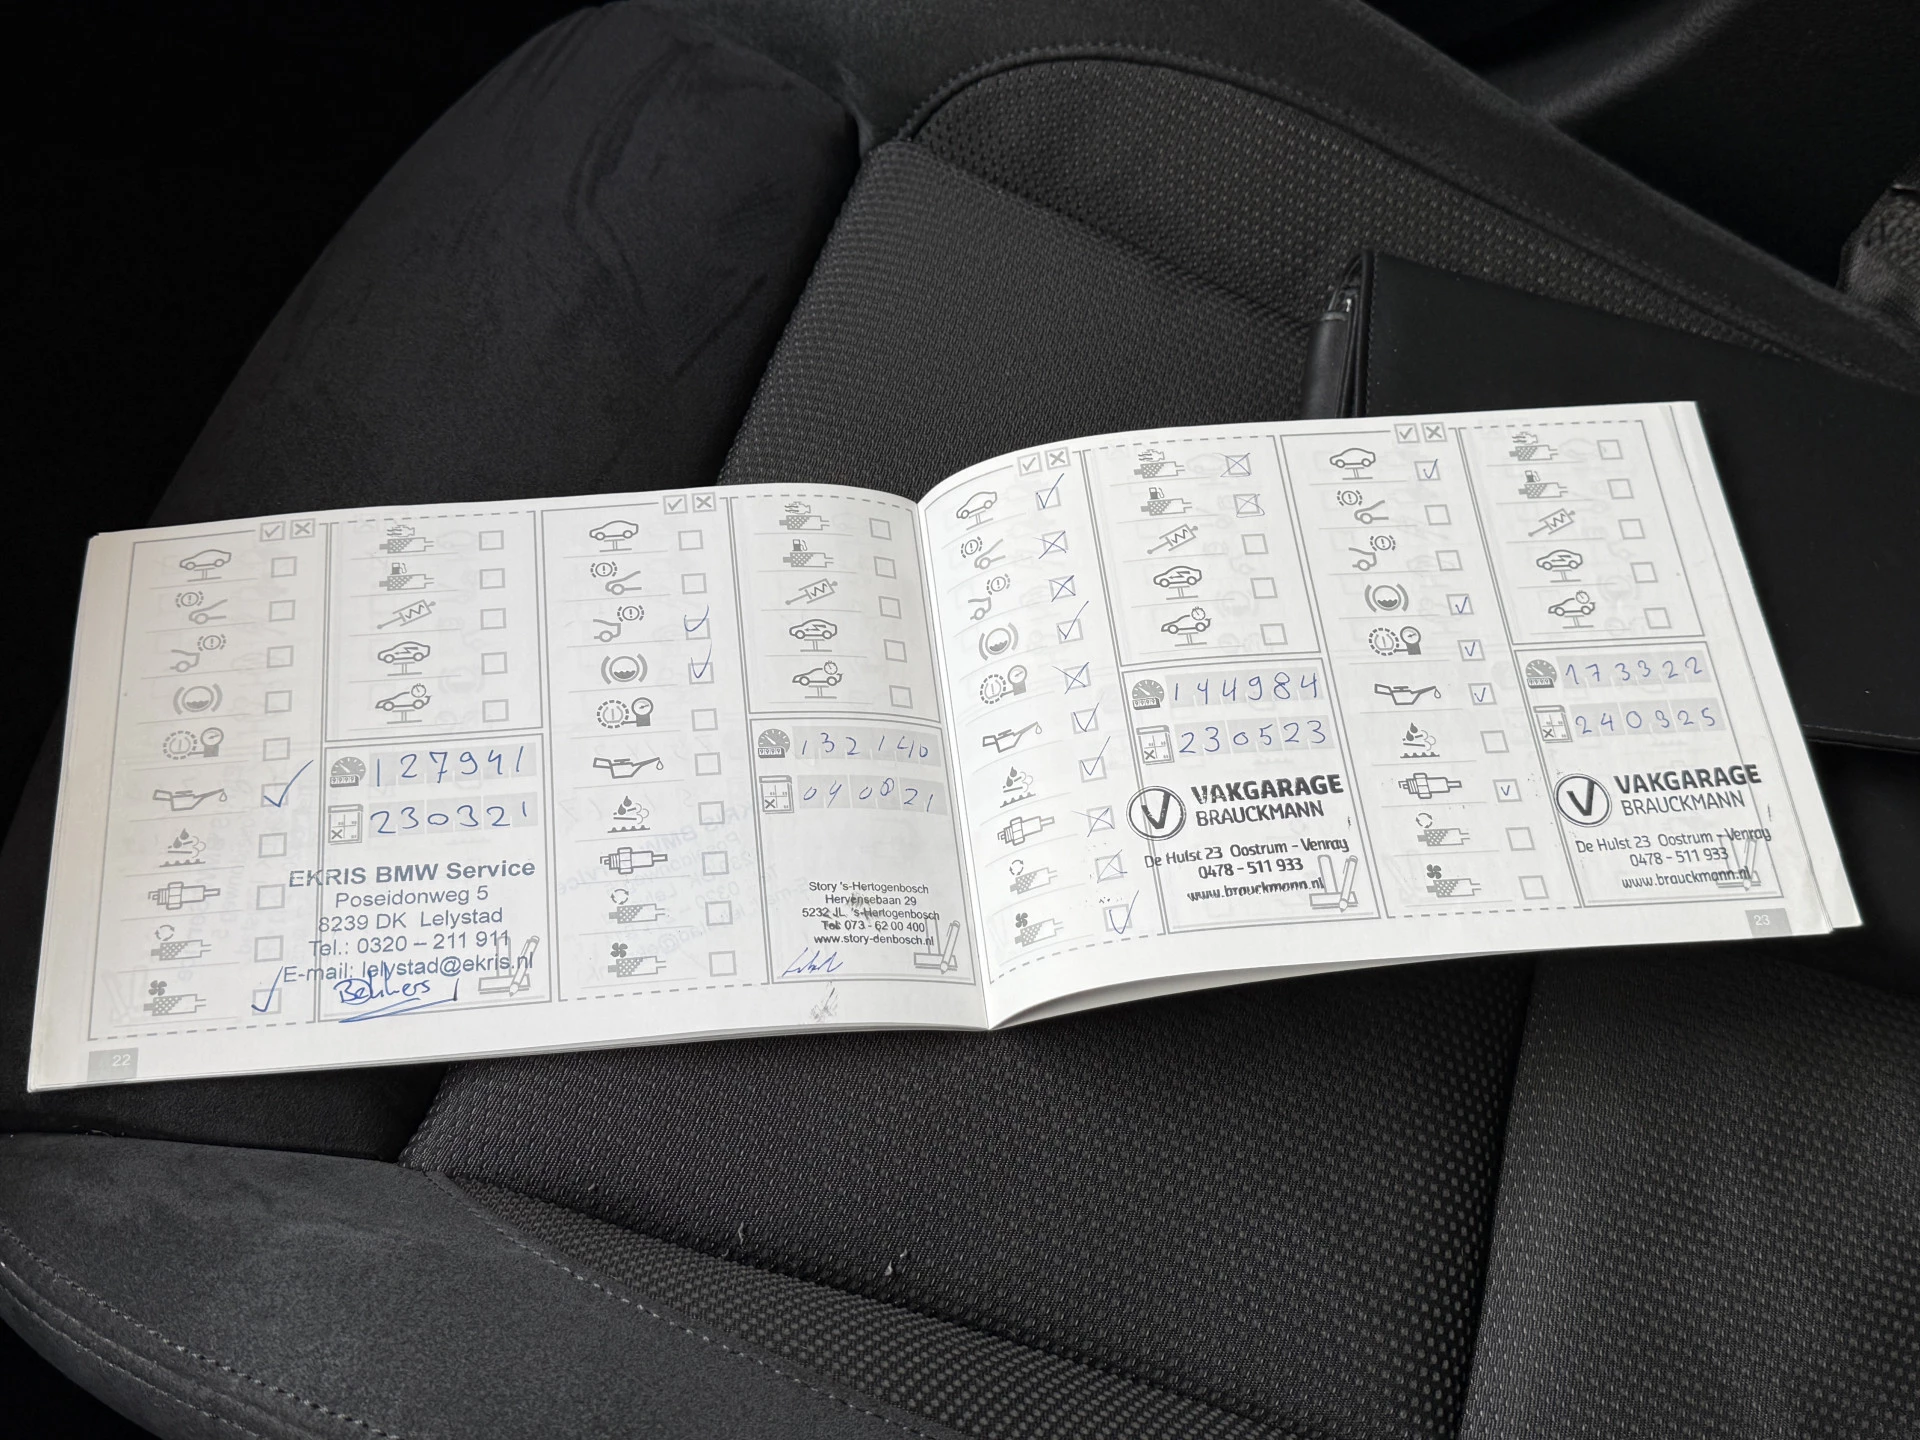 127941
230321
EKRIS BMW Service
Poseidonweg 5
8239 DK Lelystad
Tel.: 0320 - 211 911
E-mail: lelystad@ekris.nl
22
132140
040821
Story 's-Hertogenbosch
Hervensebaan 29
5232 JL 's-Hertogenbosch
Tel: 073 - 62 00 400
www.story-denbosch.nl
144984
230523
V
VAKGARAGE
BRAUCKMANN
De Hulst 23 Oostrum - Venray
0478 - 511 933
www.brauckmann.nl
173322
240325
V
VAKGARAGE
BRAUCKMANN
De Hulst 23 Oostrum - Venray
0478 - 511 933
www.brauckmann.nl
23